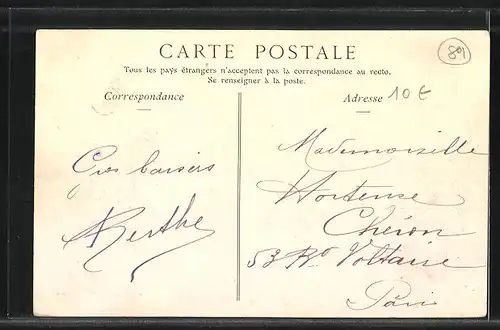 CARTE POSTALE
Tous les pays étrangers n'acceptent pas la correspondance au recto.
Se renseigner à la poste.
Correspondance
Adresse
89
10 €
Gros baisers
Berthe
Mademoiselle
Hortense
Chéron
53 Bd Voltaire
Paris